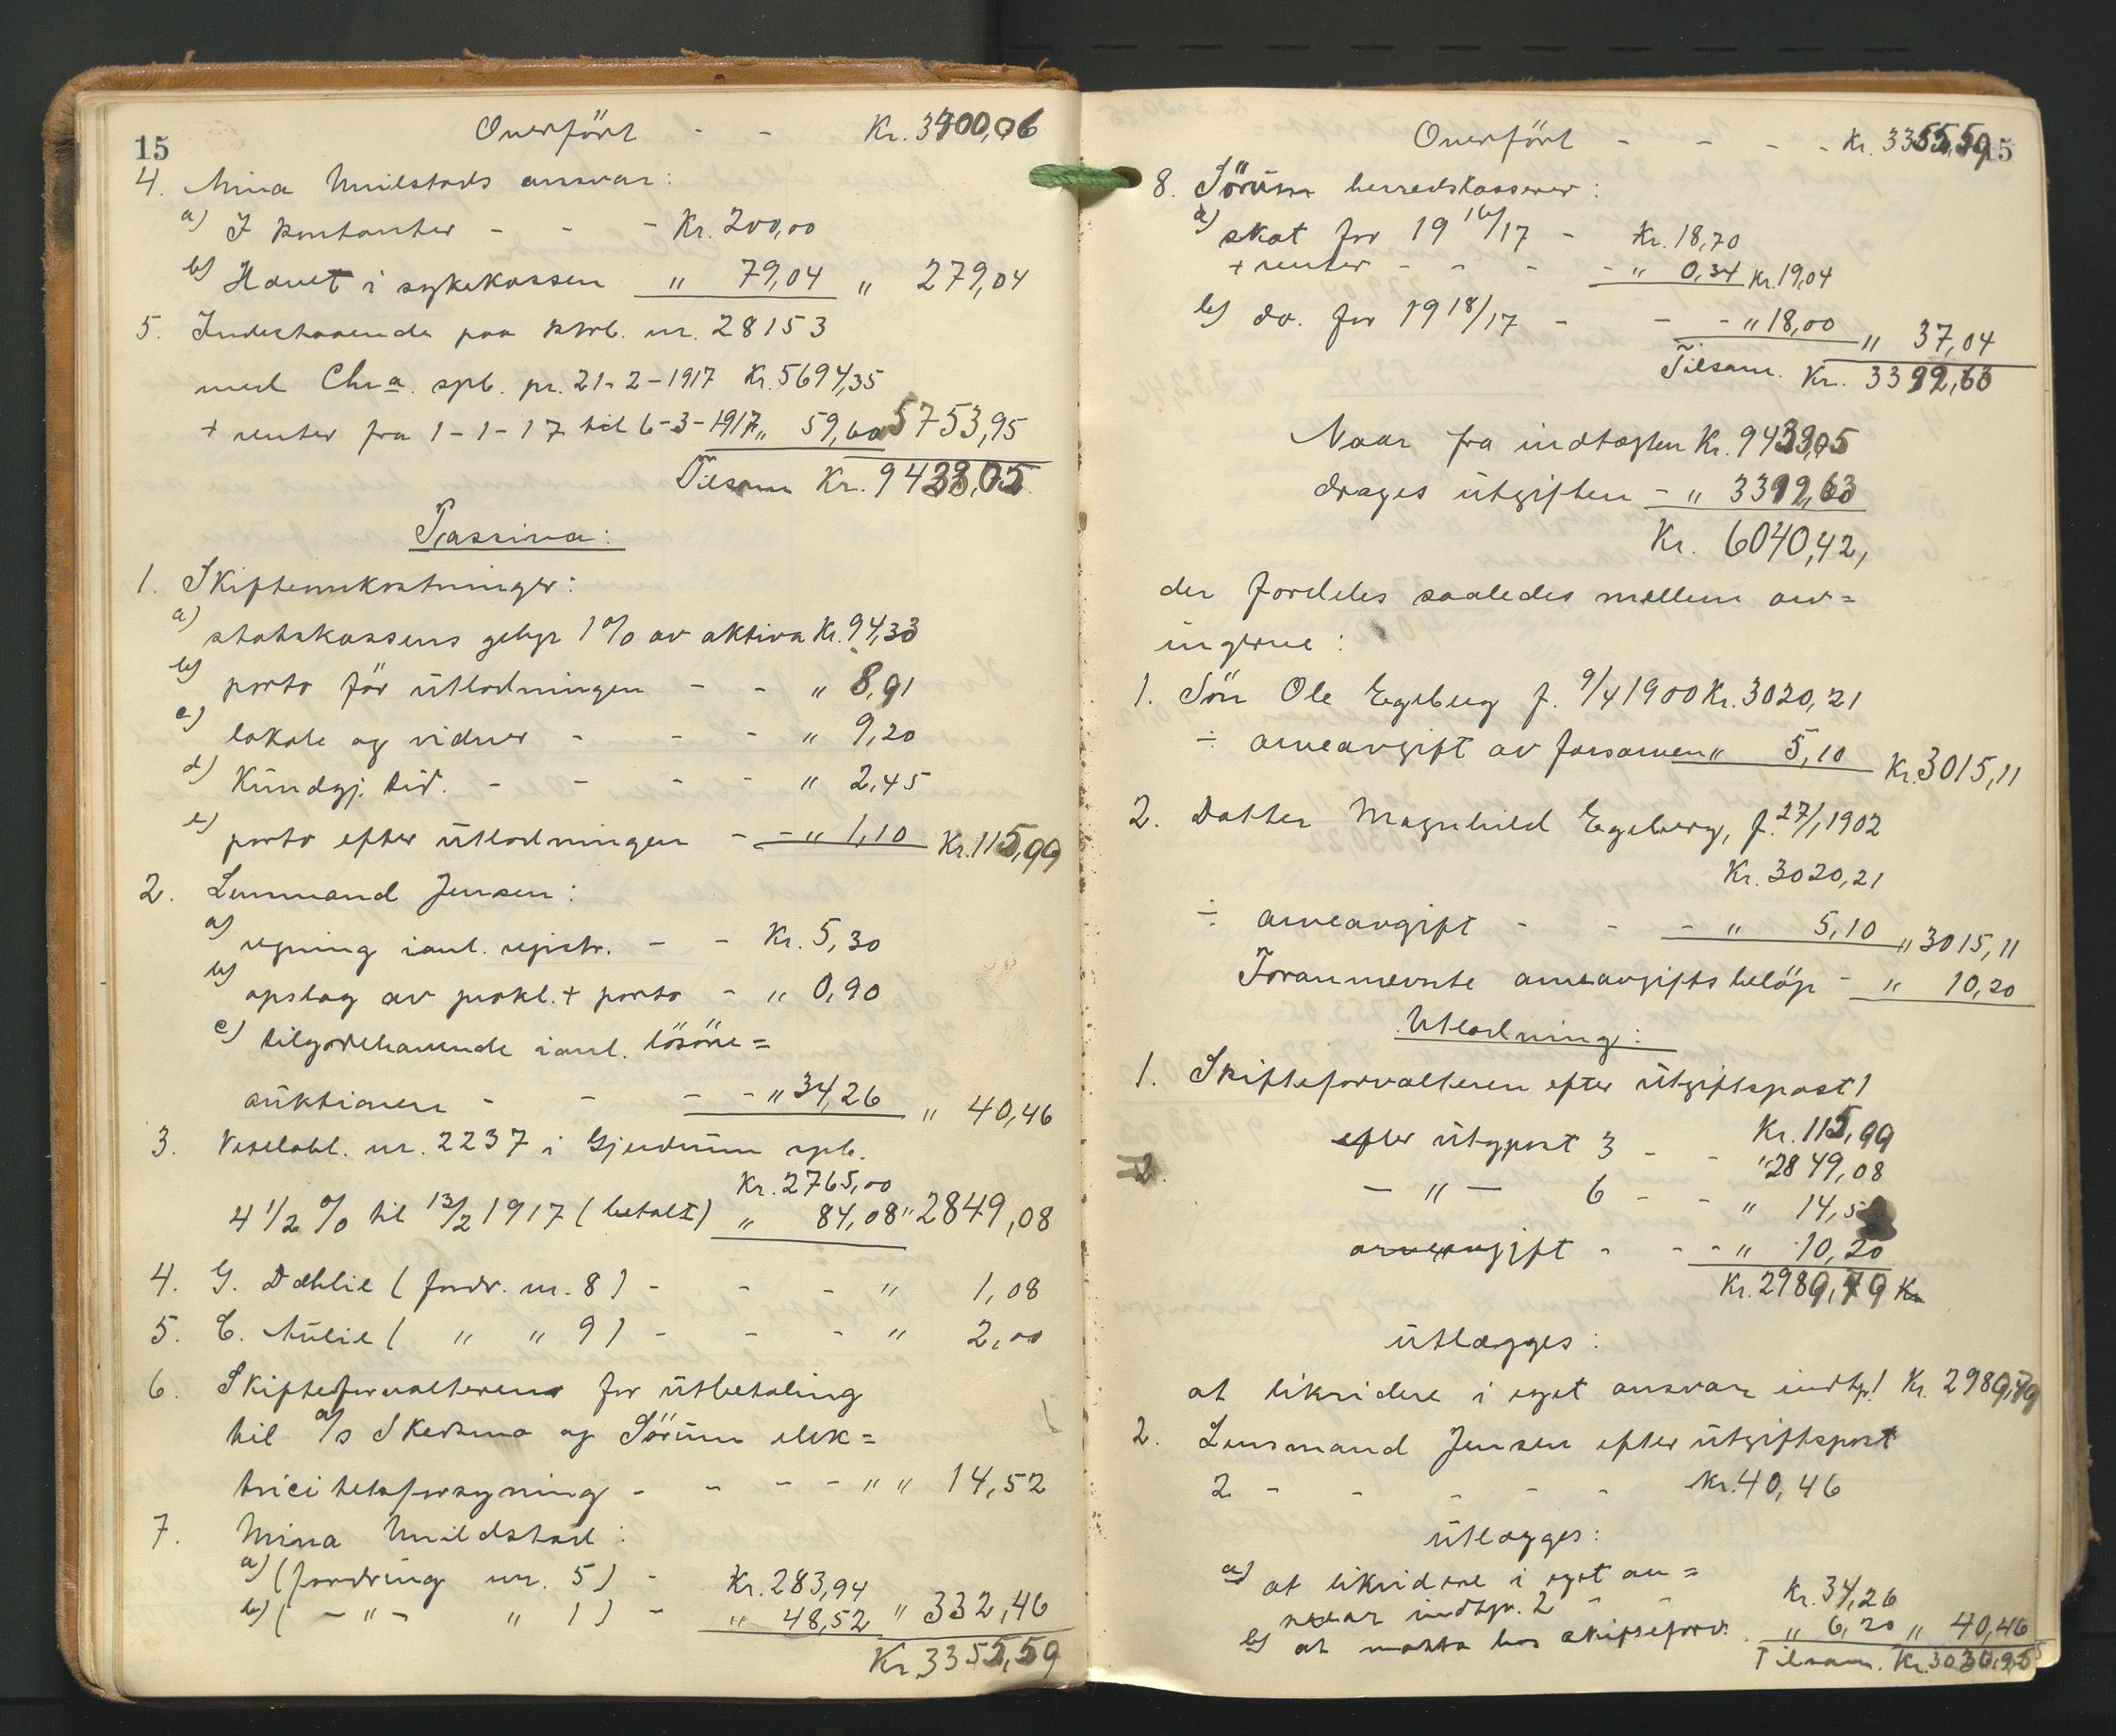 15
Overført - - Kr. 3400,06
4. Mina Smilstads ansvar:
a) I kontanter - - - Kr. 200,00
b) Hævet i sykekassen " 79,04 " 279,04
5. Indestaaende paa ktrb. nr. 28153
med Chr.a. spb. pr. 21-2-1917 Kr. 5694,35
+ renter fra 1-1-17 til 6-3-1917 " 59,60 5753,95
Tilsam Kr. 9433,05
Passiva:
1. Skifteomkostninger:
a) statskassens gebyr 1% av aktiva Kr. 94,33
b) porto før utlodningen - - " 8,91
c) lokale og vidner - - - " 9,20
d) Kundgj. tid. - - - - " 2,45
e) porto efter utlodningen - - " 1,10 Kr. 115,99
2. Lensmand Jensen:
a) regning i anl. registr. - - Kr. 5,30
b) opslag av prokl. + porto - " 0,90
c) tilgodehavende i anl. løsøre=
auktionen - - - - " 34,26 " 40,46
3. Vekselobl. nr. 2237 i Gjerdrum spb.
Kr. 2765,00
4 1/2 % til 13/2 1917 (betalt) " 84,08 " 2849,08
4. G. Dæhlie (fordr. nr. 8) - - - " 1,08
5. E. Aulie ( " " 9) - - - " 2,00
6. Skifteforvalteren for utbetaling
til A/s Skedsmo og Sørum elek=
tricitetsforsyning - - - - " " 14,52
7. Mina Smildstad:
a) (fordring nr. 5) - Kr. 283,94
b) ( - " - " 1) - " 48,52 " 332,46
Kr. 3355,59
Overført - - - - Kr. 3355,59
15
8. Sørum herredskasserer:
a) skat for 19 16/17 - Kr. 18,70
+ renter - - - - " 0,34 Kr. 19,04
b) do. for 19 18/17 - - - " 18,00 " 37,04
Tilsam. Kr. 3392,63
Naar fra indtægten Kr. 9433,05
drages utgiften - " 3392,63
Kr. 6040,42,
der fordeles saaledes mellem arv=
ingerne:
1. Søn Ole Egeberg f. 9/4 1900 Kr. 3020,21
÷ arveavgift av formuen " 5,10 Kr. 3015,11
2. Datter Magnhild Egeberg, f. 27/1 1902
Kr. 3020,21
÷ arveavgift - - - " 5,10 " 3015,11
Forannevnte arveavgiftsbeløp - " 10,20
Utlodning:
1. Skifteforvalteren efter utgiftspost 1
Kr. 115,99
efter utgpost 3 - - " 2849,08
2.
- " - 6 - - " 14,5
arveavgift - - - " 10,20
Kr. 2989,79 Kr.
utlægges:
at likvidere i eget ansvar indtp. 1 Kr. 2989,79
2. Lensmand Jensen efter utgiftspost
2 - - - - - Kr. 40,46
utlægges:
a) at likvidere i eget an=
svar indtgp. 2 - - Kr. 34,26
b) at motta hos skifteforv. " 6,20 " 40,46
Tilsam. Kr.